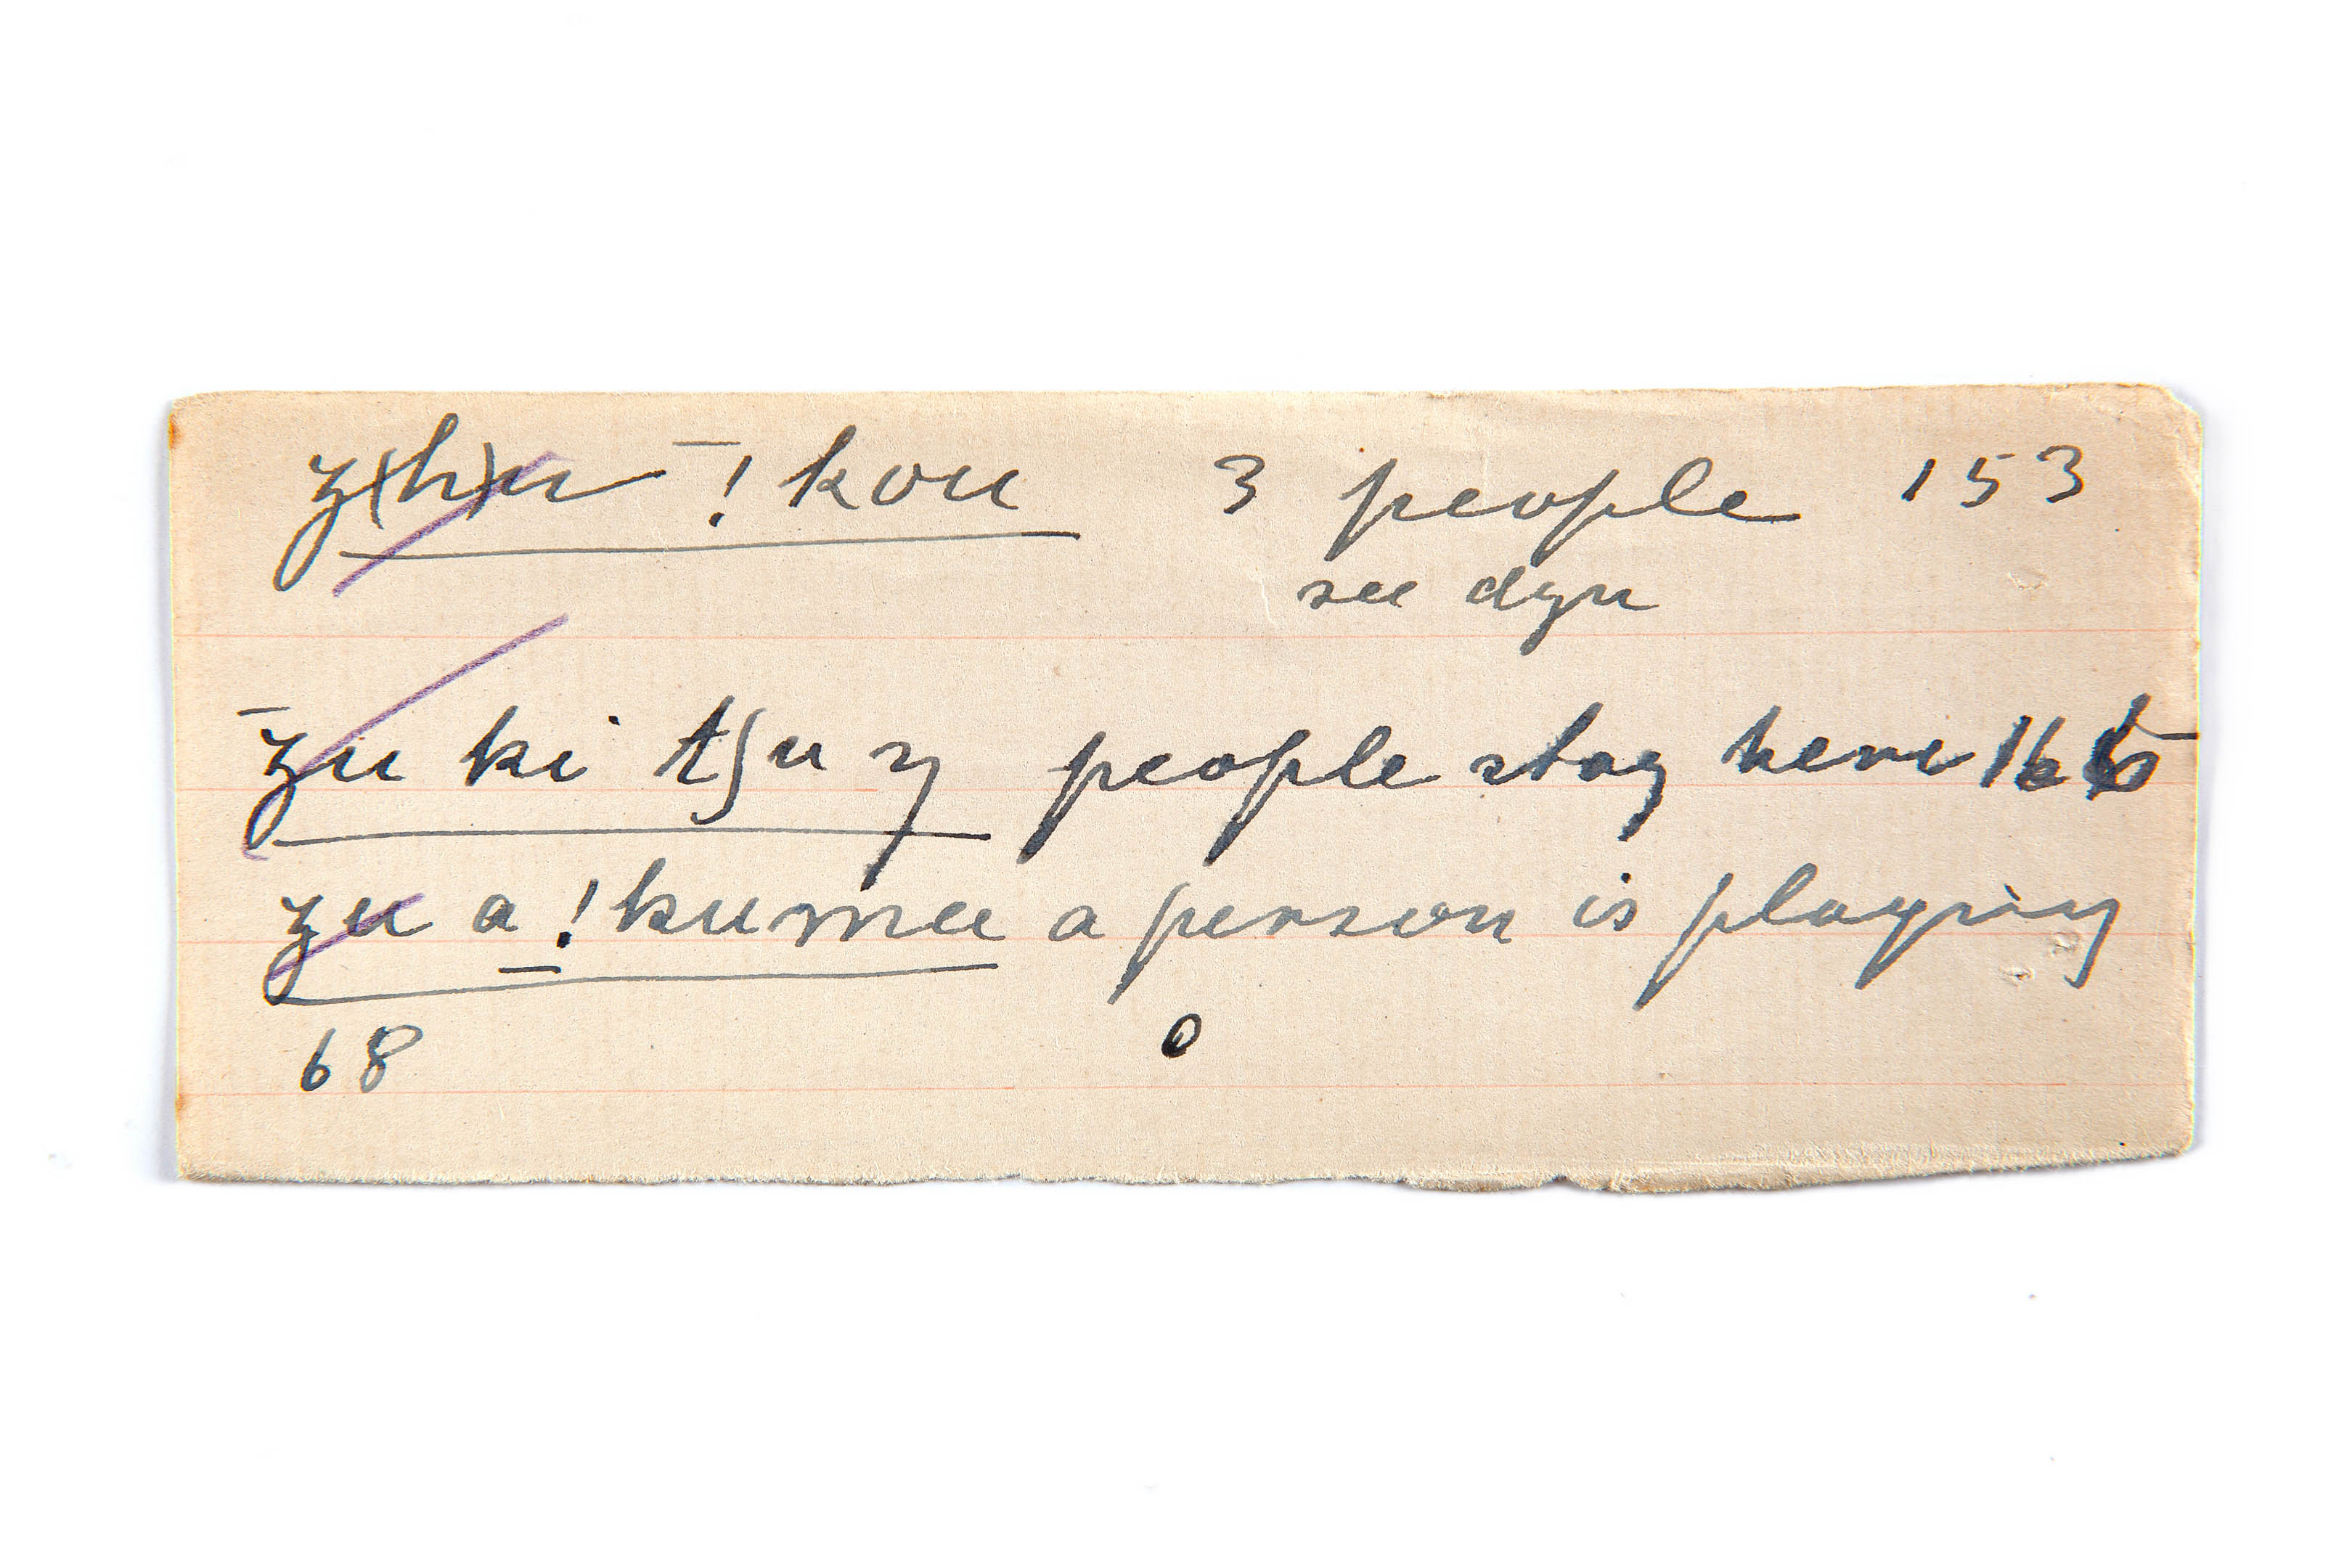 ʒ(h)u ¯!kou 3 people 153
see dʒu
¯ʒu ki tʃu ŋ people stay here 166
ʒu a !kumee a person is playing
68 0